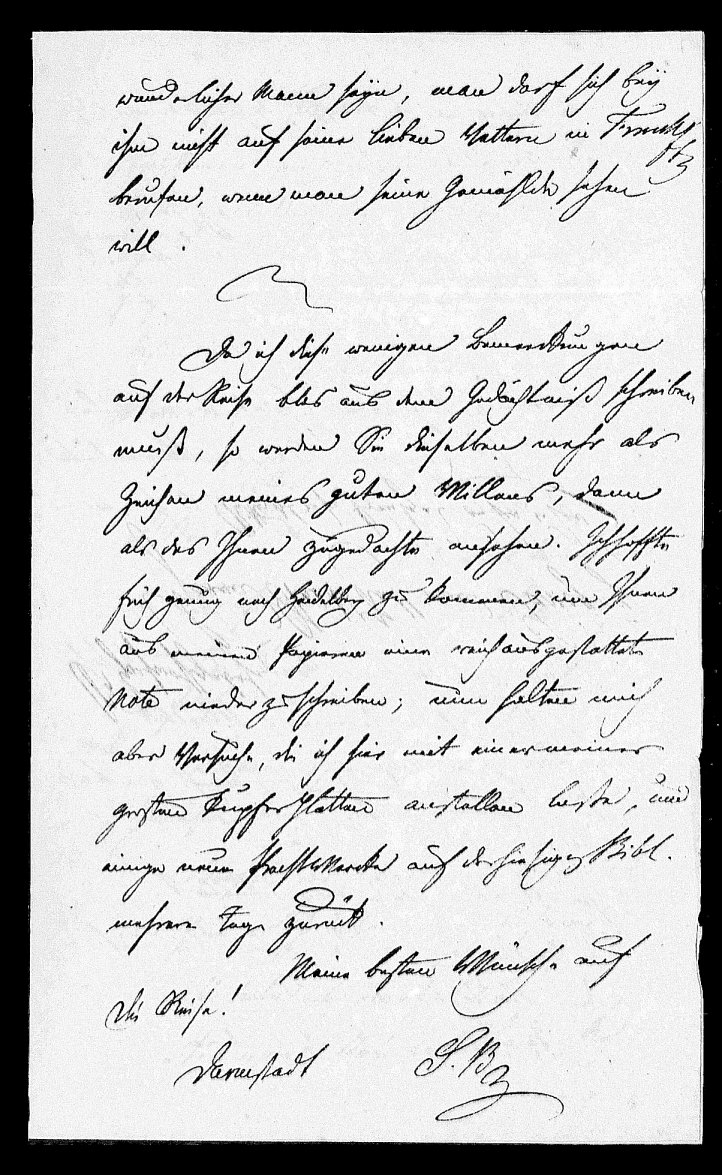 wunderlicher Mann seyn, man darf sich bey
ihm nicht auf seine lieben Vettern in Frankf
berufen, wenn man seine Gemählde sehen
will.
Da ich diese wenigen Bemerkungen
auf der Reise blos aus dem Gedächtniß schreiben
muß, so werden Sie dieselben mehr als
Zeichen meines guten Willens, denn
als das Ihnen zugedachte ansehen. Ich hoffte
früh genug nach Heidelberg zu kommen um Ihnen
aus meinen Papieren eine reich ausgestattete
Note niederzuschreiben; nun halten mich
aber Versuche, die ich hier mit einer meiner
grosten Kupfer Platten anstellen lasse, und
einige neue Prachtwercke auf der hiesigen Bibl.
mehrere Tage zurück.
Meine besten Wünsche auf
die Reise!
Darmstadt S. B